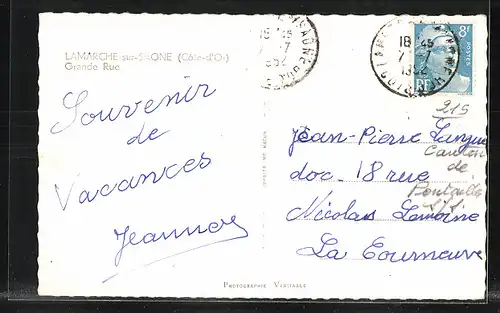 LAMARCHE-sur-SAONE (Côte-d'Or)
Grande Rue
Souvenir
de
Vacances
18 45
7 -7
1952
18 45
7 -7
1952
8F
POSTES
RF
215
Jean-Pierre
Canton
doc. 18 rue
de
Nicolas Lemoine
La Courneuve
PHOTOGRAPHIE VÉRITABLE